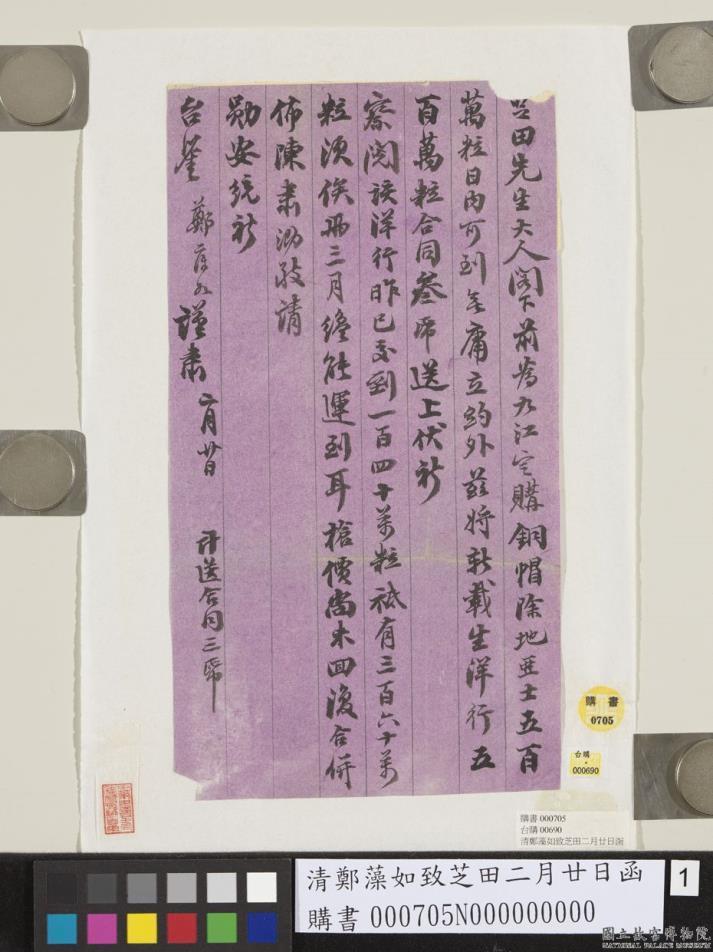 芝田先生大人閣下前為九江定購銅帽除地亞士五百
萬粒日內可到無庸立約外茲將新載生洋行五
百萬粒合同叁帋送上伏祈
察閱該洋行昨已交到一百四十萬粒祗有三百六十萬
粒須俟冊三月纔能運到耳槍價尚未回復合併
佈陳肅泐敬請
勛安統祈
台鑒 鄭藻如謹肅 二月廿日 計送合同三帋
購書
0705
台購
000690
購書 000705
台購 00690
清鄭藻如致芝田二月廿日函
清鄭藻如致芝田二月廿日函
購書 000705N000000000
1
國立故宮博物院
NATIONAL PALACE MUSEUM